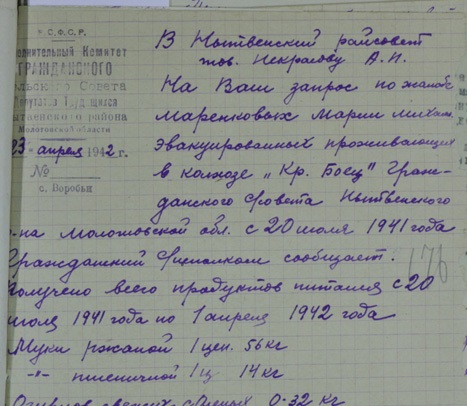 Р.С.Ф.С.Р.
лнительный Комитет
ГРАЖДАНСКОГО
льского Совета
Депутатов Трудящихся
Нытвенского района
Молотовской области
23 апреля 1942 г.
№
с. Воробьи
В Нытвенский райсовет
тов. Некрасову А.П.
На Ваш запрос по жалобе
Маренковых Марии
эвакуированных проживающих
в колхозе „Кр. Боец" Граж-
данского с/совета Нытвенского
р-на Молотовской обл. с 20 июля 1941 года
Гражданский сообщает.
176
Получено всего продуктов питания с 20
июля 1941 года по 1 апреля 1942 года
Муки ржаной 1 цен. 56 кг
-"- пшеничной 1 ц 14 кг
0-32 кг